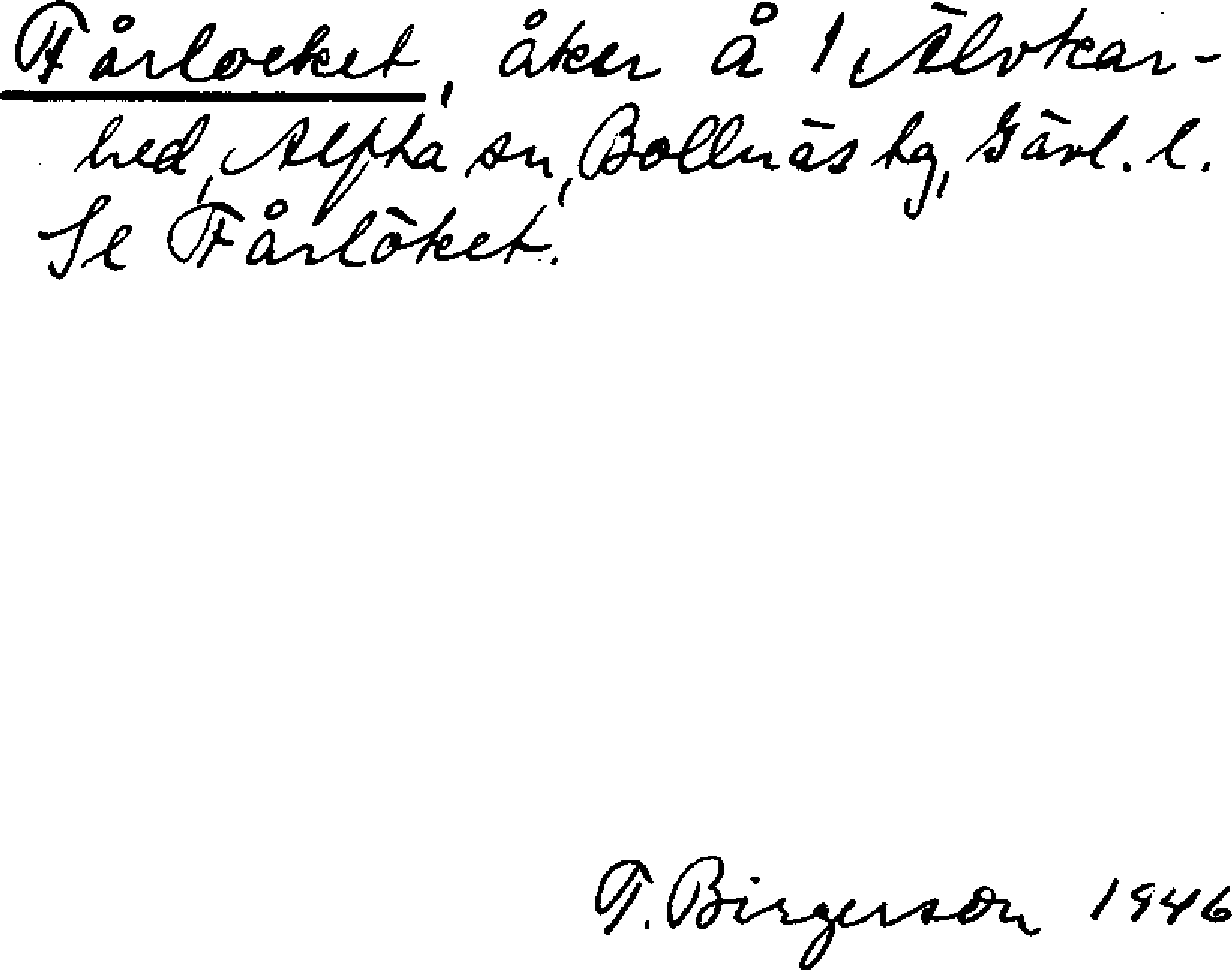 Fårlocket, åker å 1 Älvkar-
hed, Alfta sn, Bollnäs tg, Gävl. l.
Se Fårlöket.
T. Birgerson 1946